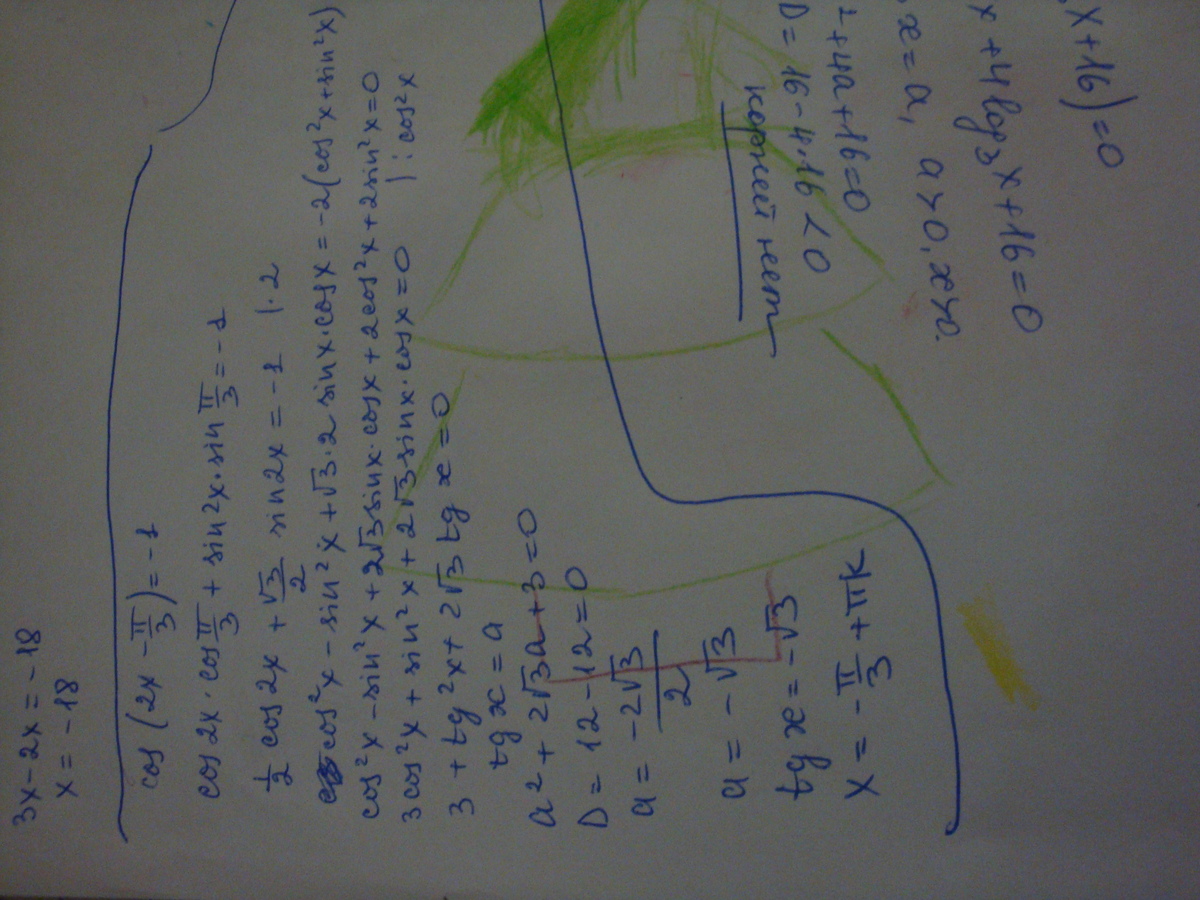 3x - 2x = -18
x = -18
cos (2x - π/3) = -1
cos 2x · cos π/3 + sin 2x · sin π/3 = -1
1/2 cos 2x + √3/2 sin 2x = -1 | · 2
cos²x - sin²x + √3 · 2 sin x · cos x = -2(cos²x + sin²x)
cos²x - sin²x + 2√3 sin x · cos x + 2cos²x + 2sin²x = 0
3cos²x + sin²x + 2√3 sin x · cos x = 0 | : cos²x
3 + tg²x + 2√3 tg x = 0
tg x = a
a² + 2√3a + 3 = 0
D = 12 - 12 = 0
a = -2√3/2
a = -√3
tg x = -√3
x = -π/3 + πk
D = 16 - 4·16 < 0
² + 4a + 16 = 0
корней нет
x = a, a > 0, x > 0.
x + 4 log₃ x + 16 = 0
x + 16) = 0